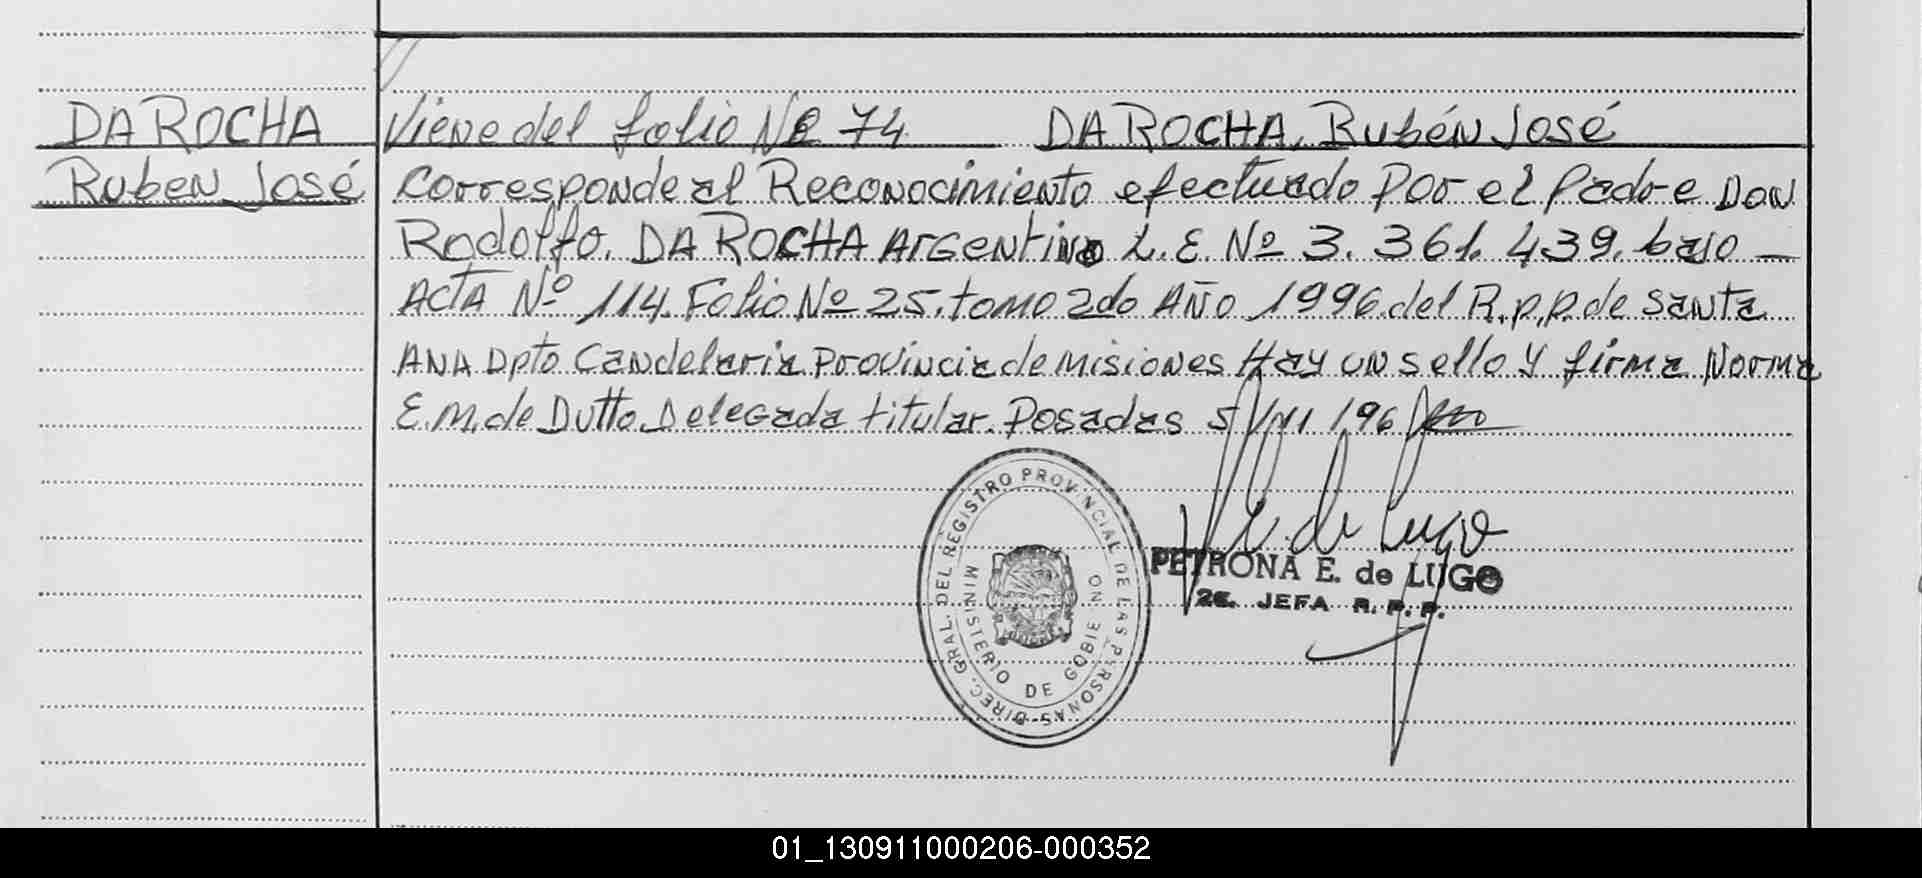 DA ROCHA
Ruben José
Viene del folio Nº 74 DA ROCHA, Rubén José
Corresponde al Reconocimiento efectuado por el padre Don
Rodolfo. DA ROCHA Argentino L.E. Nº 3.361.439. bajo —
Acta Nº 114. Folio Nº 25. tomo 2do Año 1996. del R.p.p. de Santa
Ana Dpto Candelaria Provincia de Misiones Hay un sello y firma Norma
E.M. de Dutto Delegada titular. Posadas 5/VII/96
DIREC. GRAL. DEL REGISTRO PROVINCIAL DE LAS PERSONAS
MINISTERIO DE GOBIERNO
de Lugo
PETRONA E. de LUGO
2E. JEFA R.P.P.
01_130911000206-000352